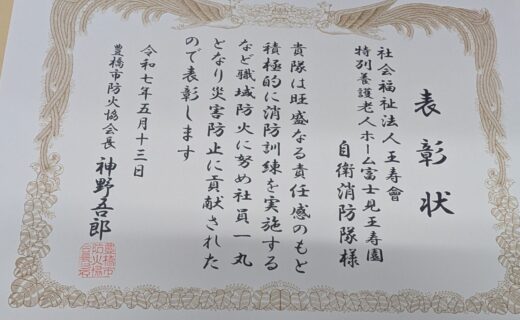 表彰状
社会福祉法人王寿會
特別養護老人ホーム富士見王寿園
自衛消防隊様
貴隊は旺盛なる責任感のもと
積極的に消防訓練を実施する
など職域防火に努め社員一丸
となり災害防止に貢献された
ので表彰します
令和七年五月十三日
豊橋市防火協会長 神野吾郎
豊橋市
防火協
会長印